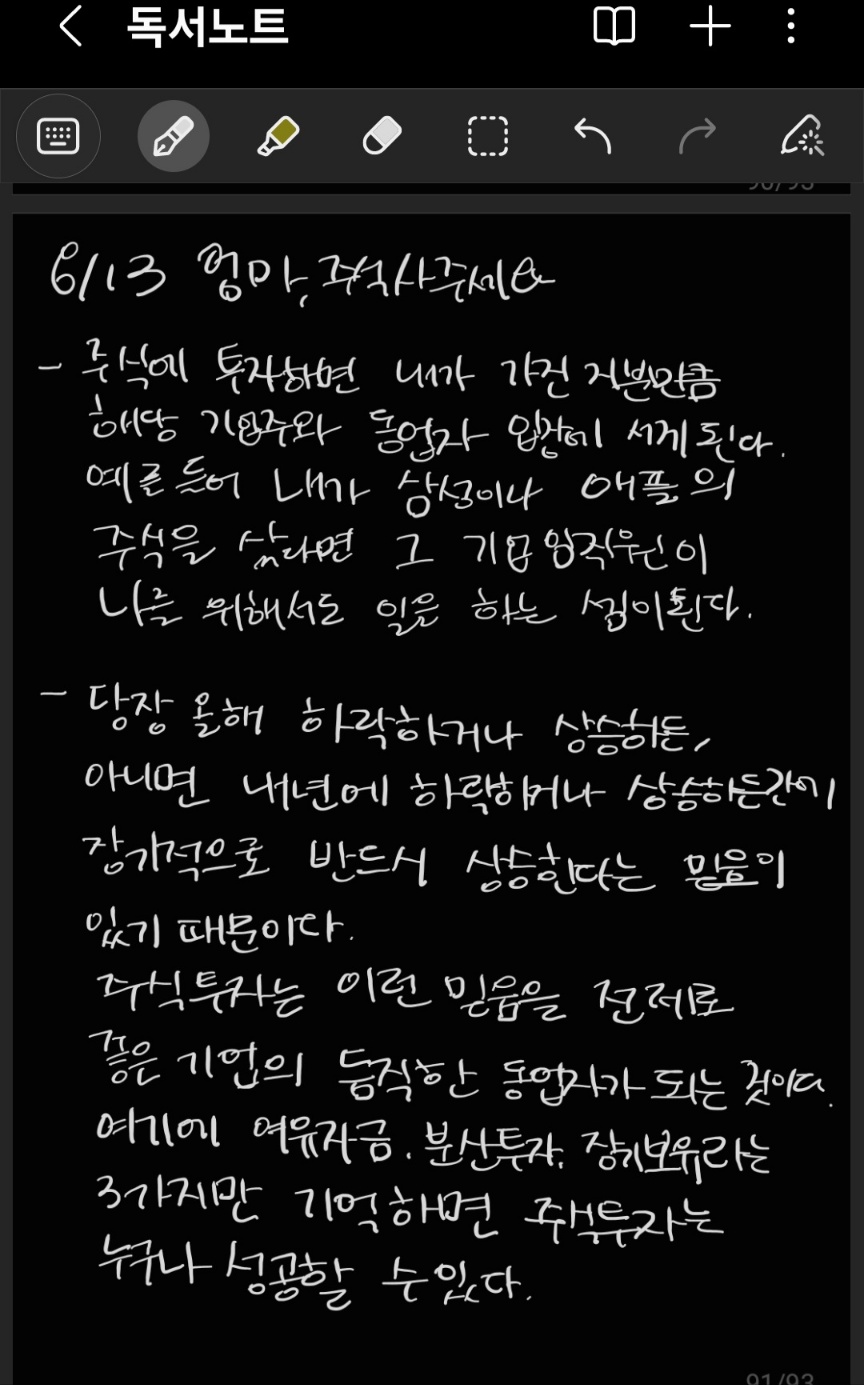 독서노트
90/93
6/13 엄마, 주식사주세요
- 주식에 투자하면 내가 가진 지분만큼
해당 기업주와 동업자 입장에 서게된다.
예를들어 내가 삼성이나 애플의
주식을 샀다면 그 기업 임직원이
나를 위해서도 일을 하는 셈이된다.
- 당장 올해 하락하거나 상승하든,
아니면 내년에 하락하거나 상승하든간에
장기적으로 반드시 상승한다는 믿음이
있기 때문이다.
주식투자는 이런 믿음을 전제로
좋은 기업의 듬직한 동업자가 되는 것이다.
여기에 여유자금. 분산투자. 장기보유라는
3가지만 기억하면 주식투자는
누구나 성공할 수 있다.
91/93